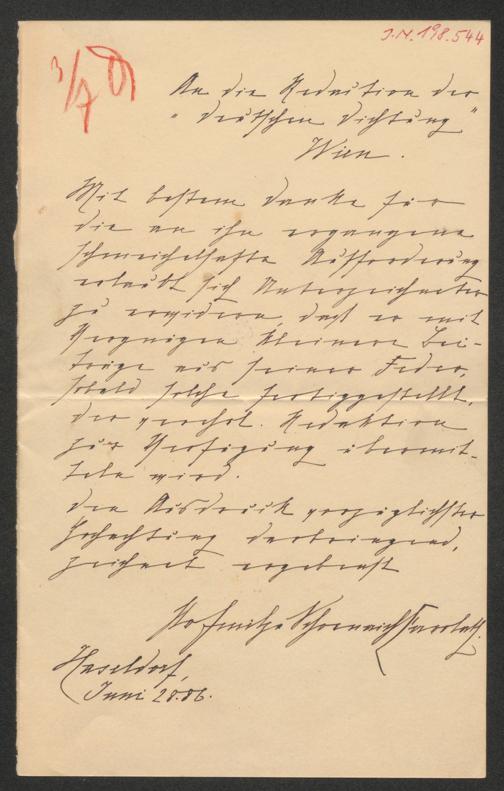 I.N. 198.544
3/7
An die Redaction der
"Deutschen Dichtung"
Wien.
Mit bestem Danke für
die an ihn ergangene
schmeichelhafte Aufforderung
erlaubt sich Unterzeichneter
zu erwidern, daß er mit
Vergnügen kleinere Bei-
träge aus seiner Feder,
sobald solche fertiggestellt,
der verehrl. Redaktion
zur Verfügung übermit-
teln wird.
Den Ausdruck vorzüglichster
Hochachtung darbringend,
zeichnet ergebenst
Schoenaich Carolath.
Haseldorf,
Juni 28.86.